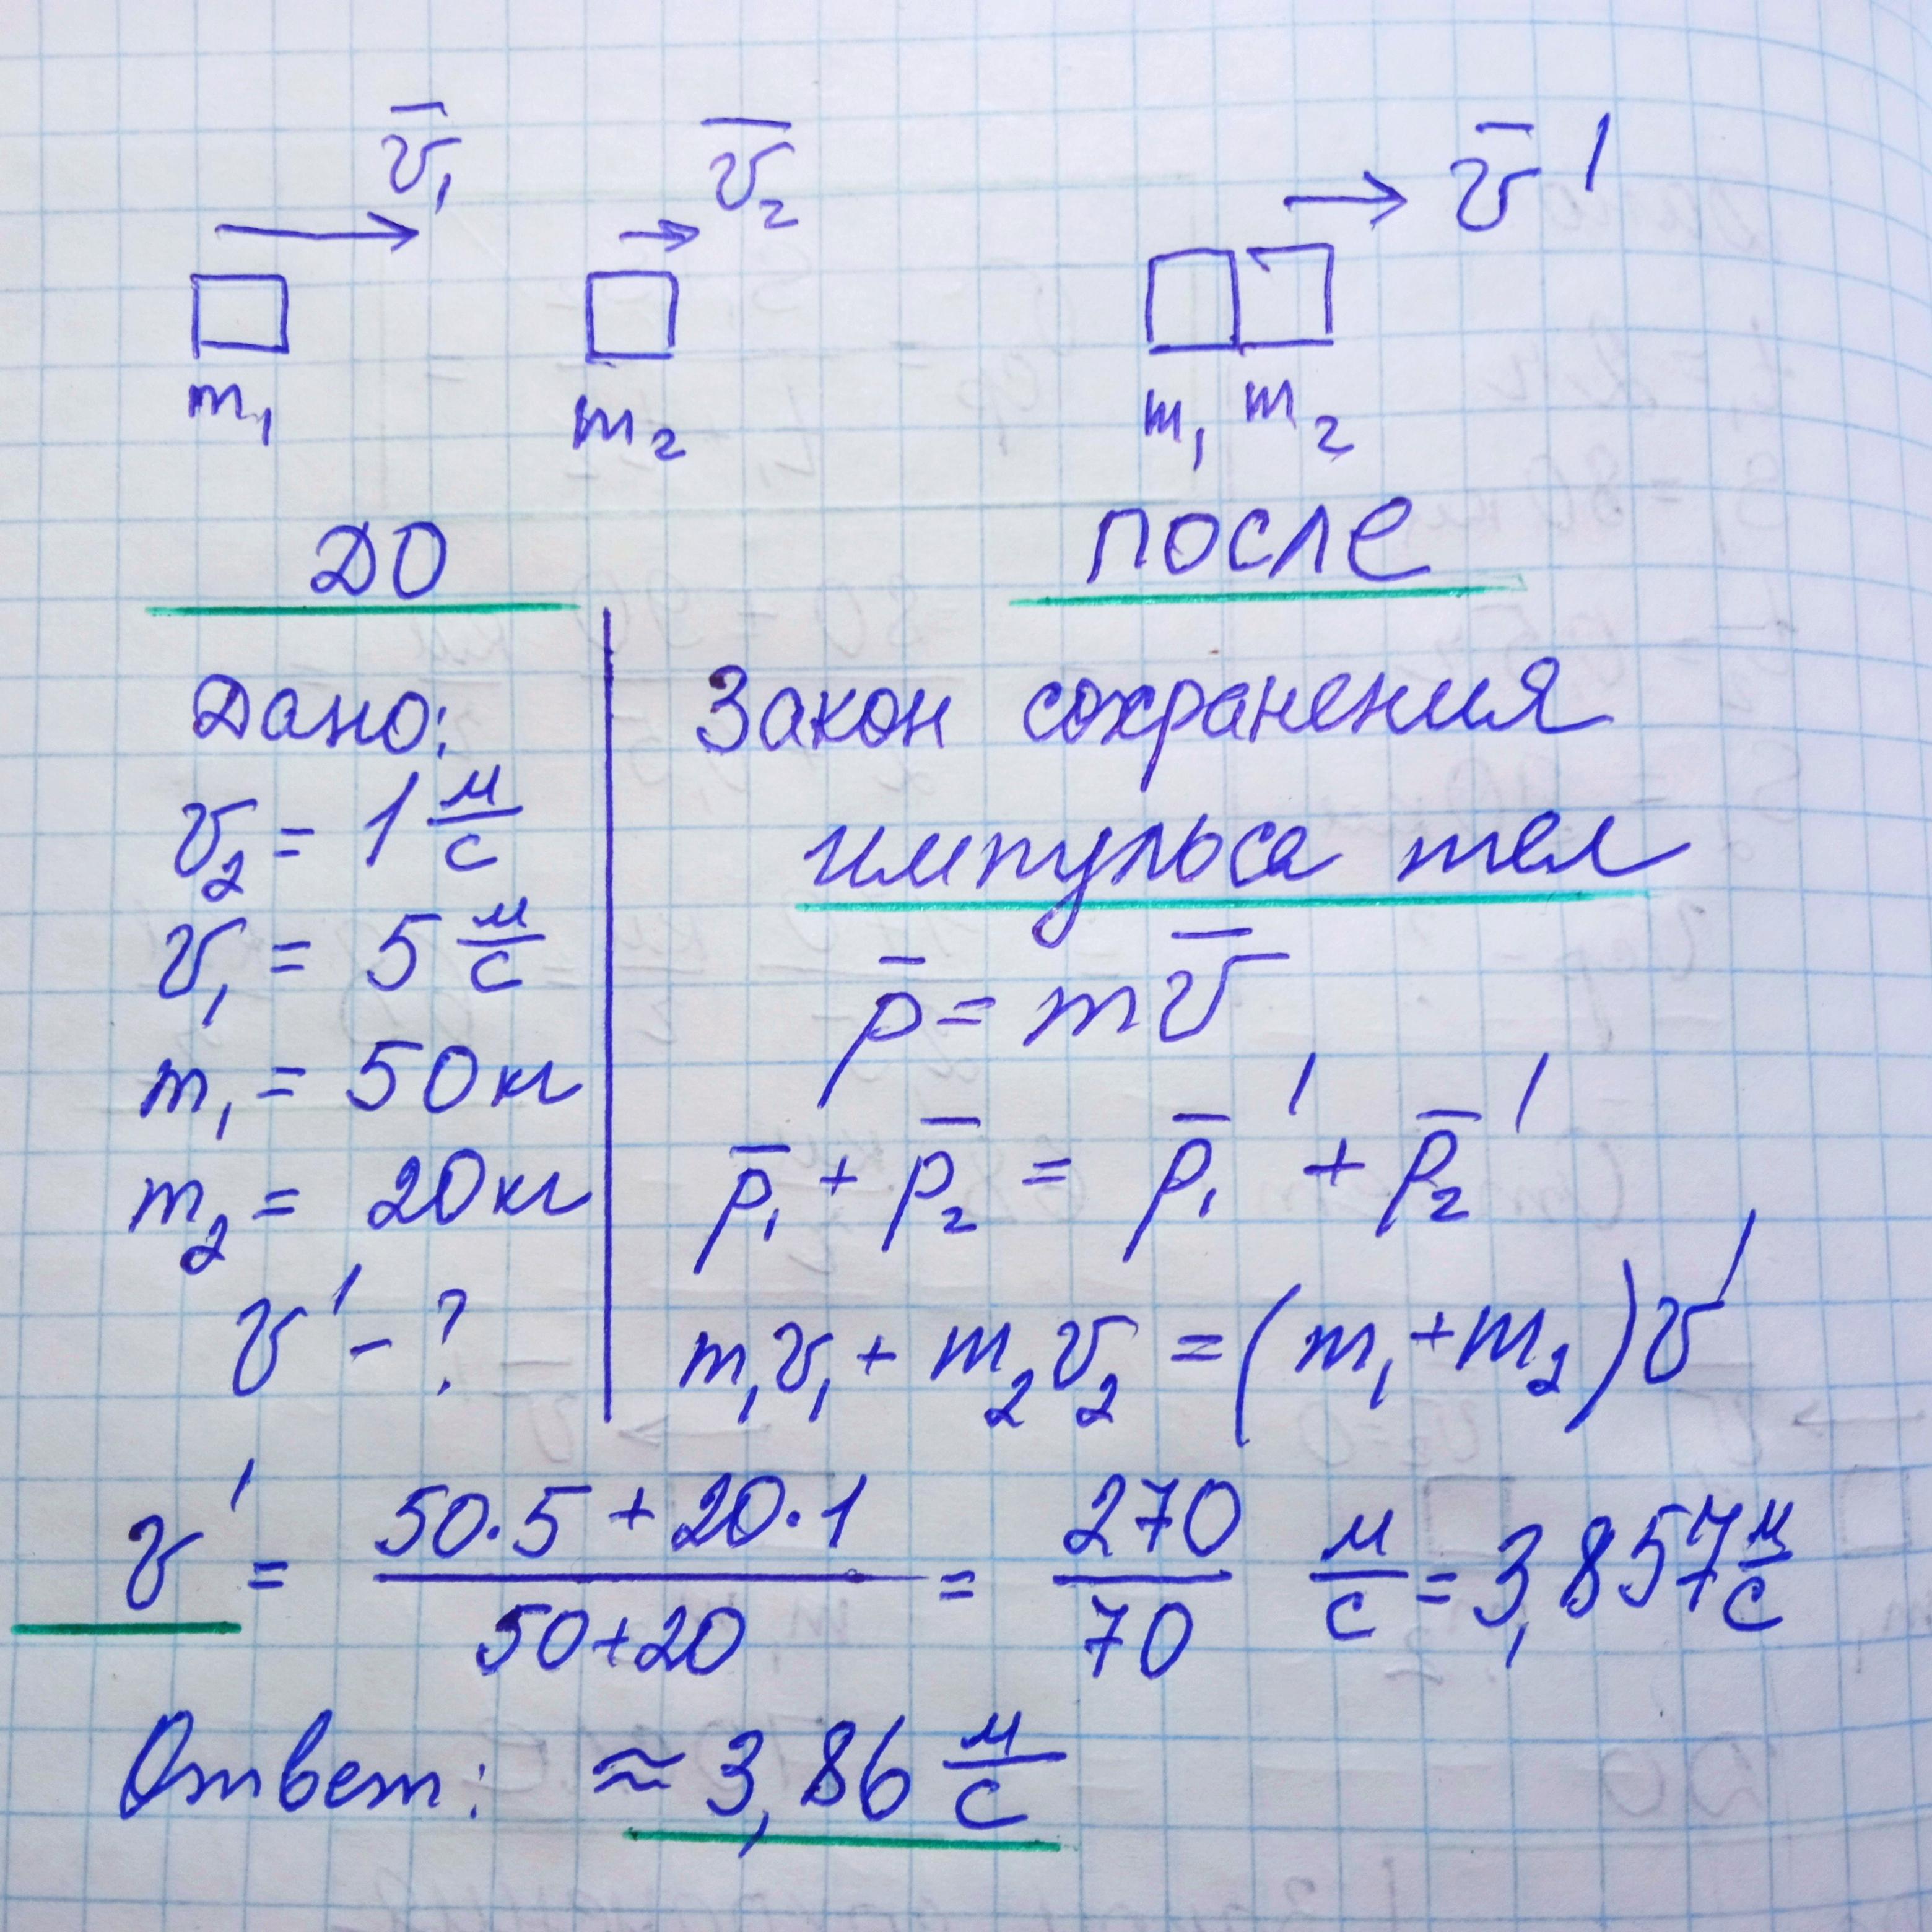 v̄₁ v̄₂ v̄'
m₁ m₂ m₁ m₂
ДО после
Дано:
v₂ = 1 м/с
v₁ = 5 м/с
m₁ = 50 кг
m₂ = 20 кг
v' - ?
Закон сохранения
импульса тел
p̄ = mv̄
p̄₁ + p̄₂ = p̄₁' + p̄₂'
m₁v₁ + m₂v₂ = (m₁+m₂)v'
v' = (50·5 + 20·1)/(50+20) = 270/70 м/с = 3,857 м/с
Ответ: ≈ 3,86 м/с